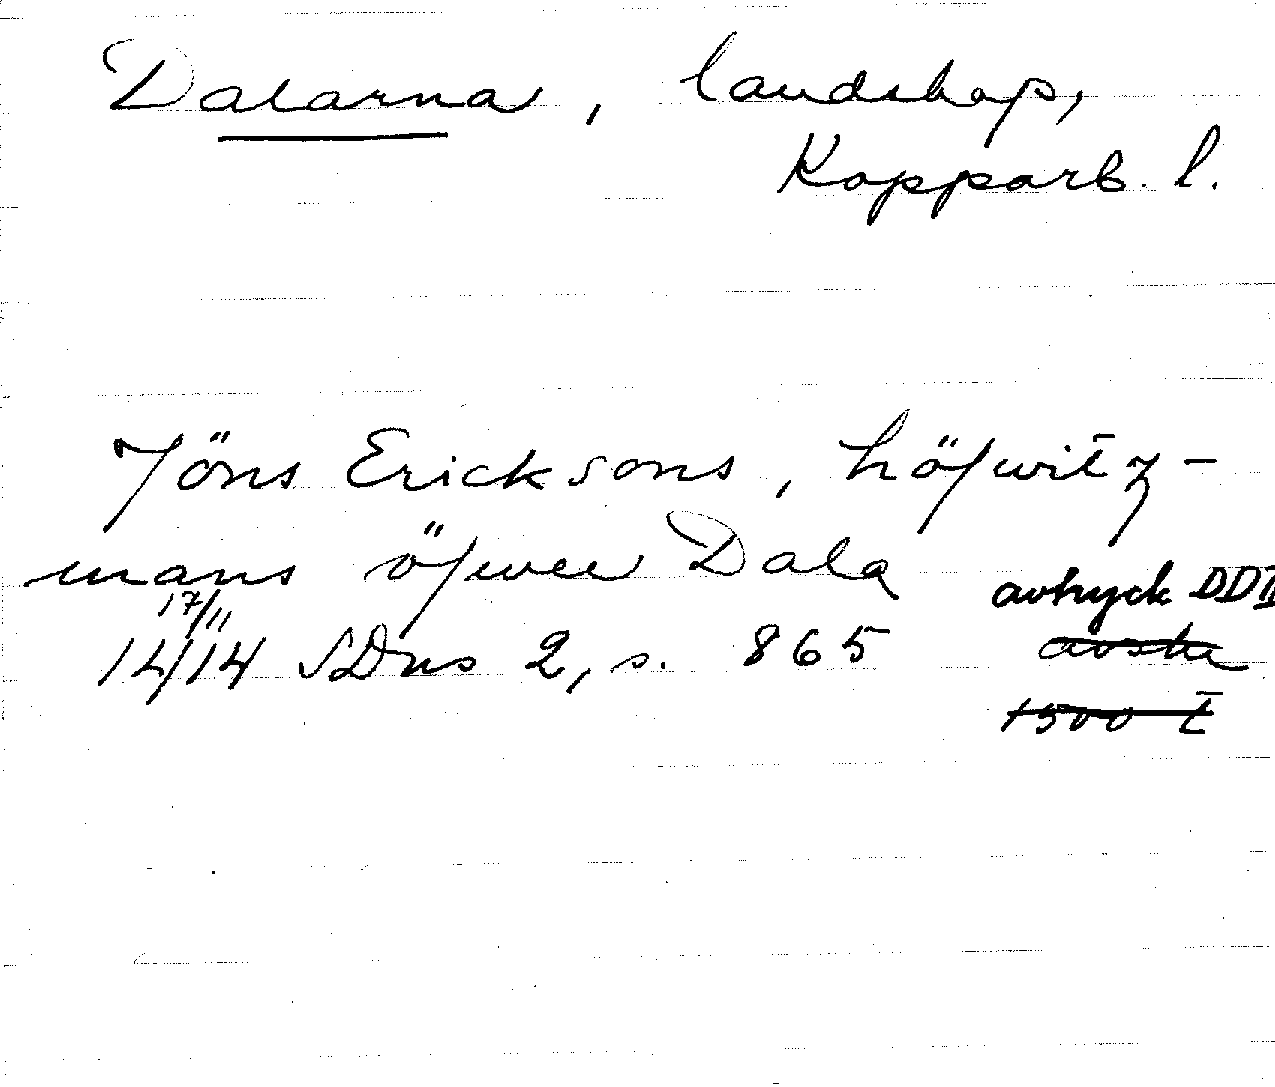 Dalarna, landskap,
Kopparb. l.
Jöns Ericksons, höfwitz-
mans öfwer Dala
17/11
14/14 SDns 2, s. 865
avtryck DD II
avskr
1500 t